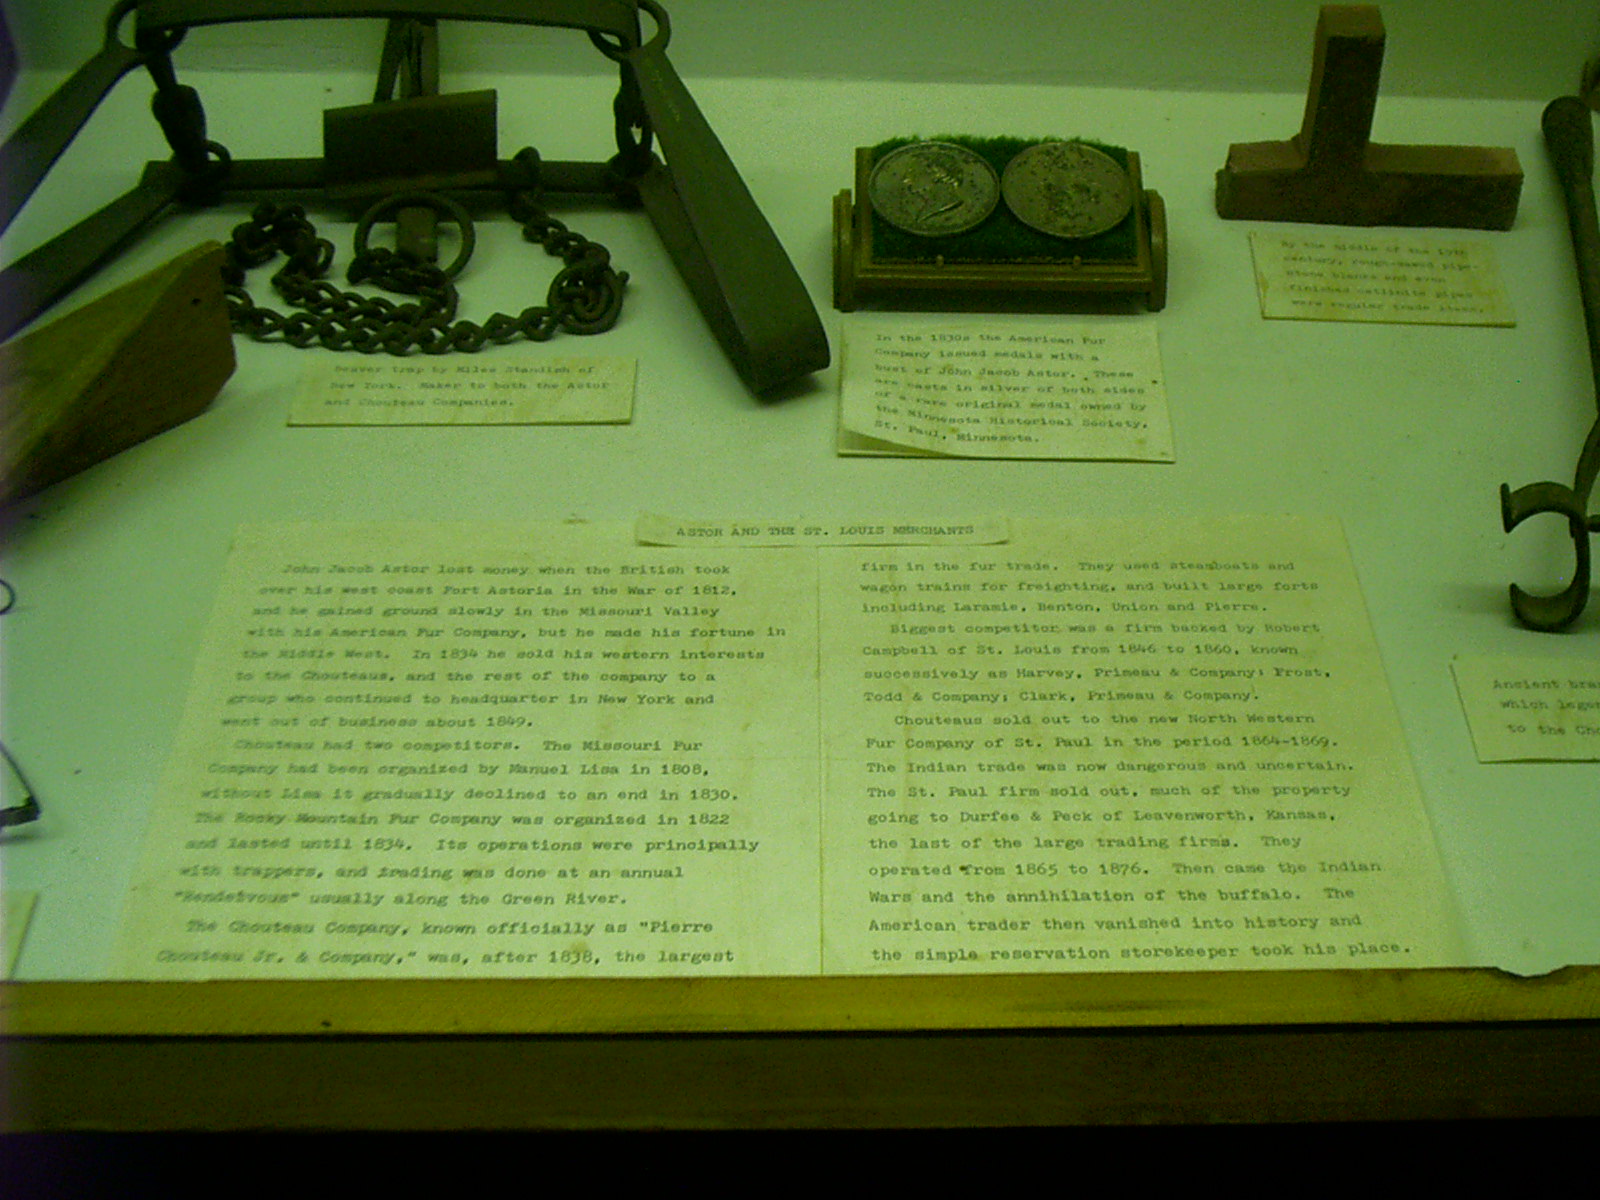 Beaver trap by Miles Standish of
New York. Maker to both the Astor
and Chouteau Companies.
In the 1830s the American Fur
Company issued medals with a
bust of John Jacob Astor. These
are casts in silver of both sides
of a rare original medal owned by
the Minnesota Historical Society,
St. Paul, Minnesota.
By the middle of the 19th
century, rough-sawed pipe-
stone blanks and even
finished catlinite pipes
were regular trade items.
ASTOR AND THE ST. LOUIS MERCHANTS
John Jacob Astor lost money when the British took
over his west coast Fort Astoria in the War of 1812,
and he gained ground slowly in the Missouri Valley
with his American Fur Company, but he made his fortune in
the Middle West. In 1834 he sold his western interests
to the Chouteaus, and the rest of the company to a
group who continued to headquarter in New York and
went out of business about 1849.
Chouteau had two competitors. The Missouri Fur
Company had been organized by Manuel Lisa in 1808,
without Lisa it gradually declined to an end in 1830.
The Rocky Mountain Fur Company was organized in 1822
and lasted until 1834. Its operations were principally
with trappers, and trading was done at an annual
"Rendezvous" usually along the Green River.
The Chouteau Company, known officially as "Pierre
Chouteau Jr. & Company," was, after 1838, the largest
firm in the fur trade. They used steamboats and
wagon trains for freighting, and built large forts
including Laramie, Benton, Union and Pierre.
Biggest competitor was a firm backed by Robert
Campbell of St. Louis from 1846 to 1860, known
successively as Harvey, Primeau & Company; Frost,
Todd & Company; Clark, Primeau & Company.
Chouteaus sold out to the new North Western
Fur Company of St. Paul in the period 1864-1869.
The Indian trade was now dangerous and uncertain.
The St. Paul firm sold out, much of the property
going to Durfee & Peck of Leavenworth, Kansas,
the last of the large trading firms. They
operated from 1865 to 1876. Then came the Indian
Wars and the annihilation of the buffalo. The
American trader then vanished into history and
the simple reservation storekeeper took his place.
Ancient
which
to the